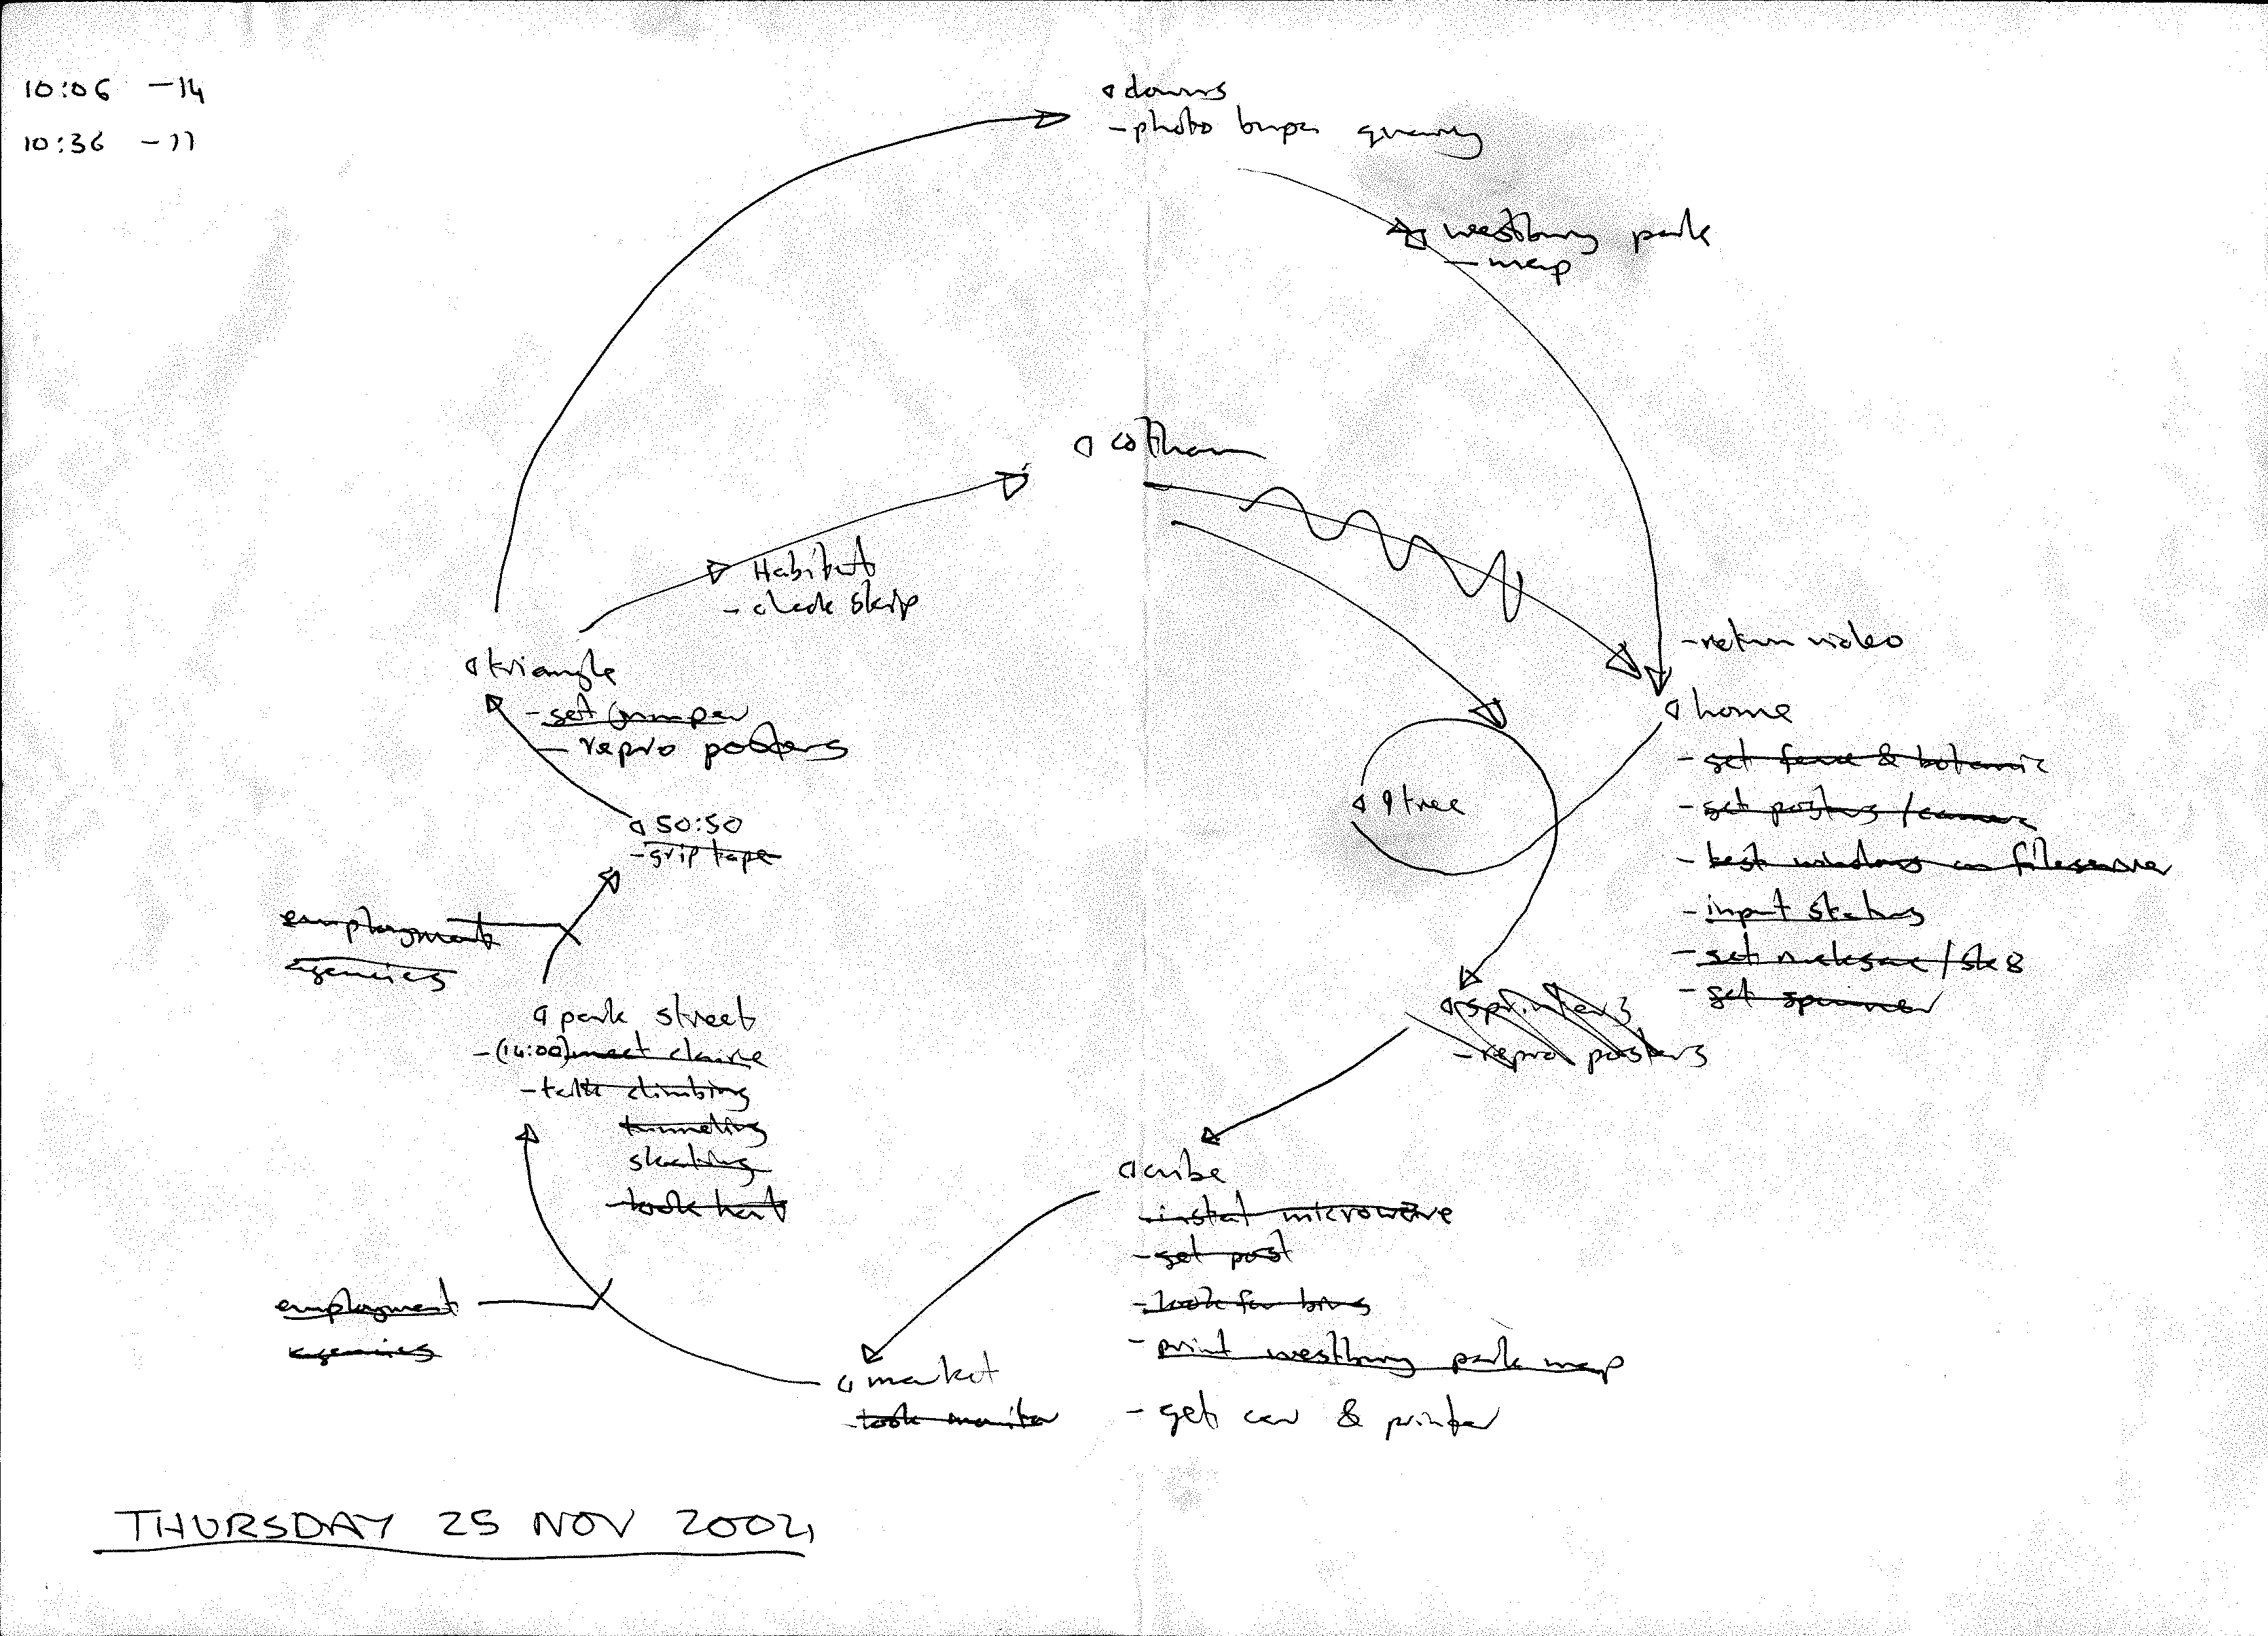 10:06 -14
10:36 -11
downs
- photo quarry
westbury park
- map
cotham
Habitat
- check skip
triangle
- get jumper
- repro posters
- return video
home
- get & botanic
- get posters / camera
- test windows on fileserver
- input status
- get rucksac / sk8
- get spanner
9tree
50:50
- grip tape
employment
agencies
park street
- (14:00) meet claire
- talk climbing
tunneling
skating
- took hart
sprinters
- repro posters
cube
- instal microwave
- get post
- look for
- print westbury park map
- get car & printer
employment
agencies
market
- took monitor
THURSDAY 25 NOV 2004